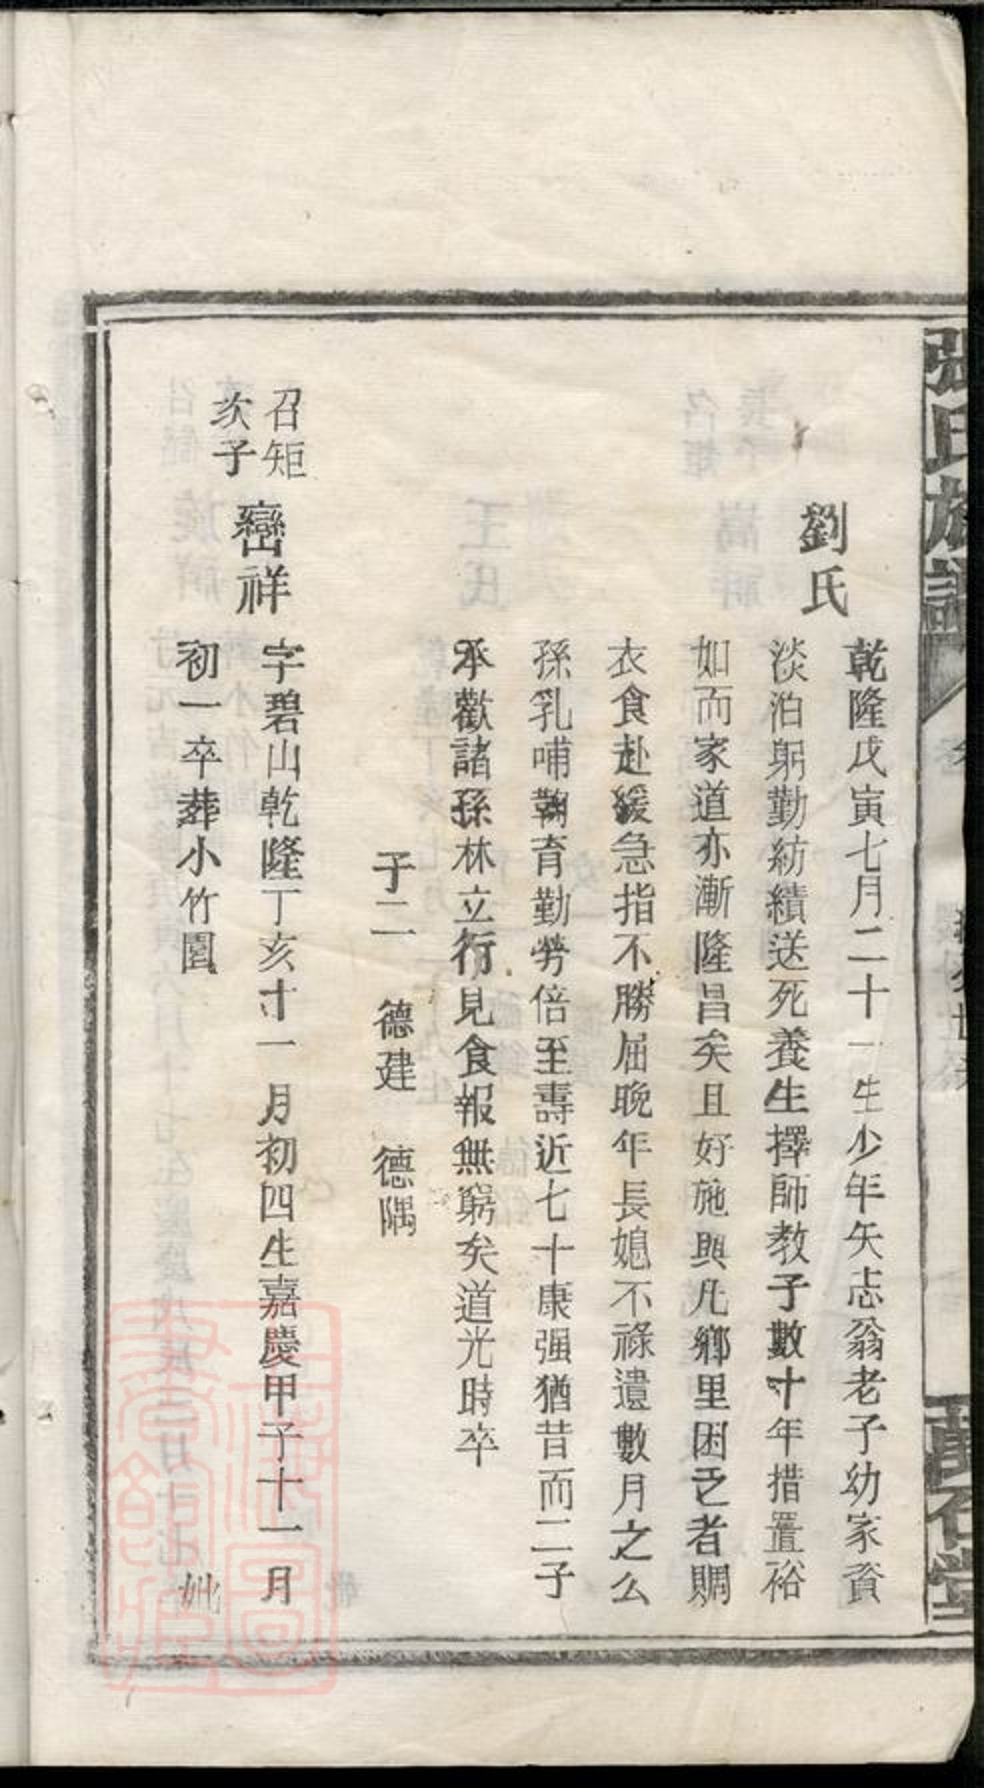 張氏族譜
劉氏
乾隆戊寅七月二十一生少年矢志翁老子幼家資
淡泊躬勤紡績送死養生擇師教子數十年措置裕
如而家道亦漸隆昌矣且好施與凡鄉里困乏者賙
衣食赴緩急指不勝屈晚年長媳不祿遺數月之么
孫乳哺鞠育勤勞倍至壽近七十康强猶昔而二子
承歡諸孫林立行見食報無窮矣道光時卒
子二 德建 德隅
召矩
次子
巒祥
字碧山乾隆丁亥十一月初四生嘉慶甲子十一月
初一卒葬小竹園